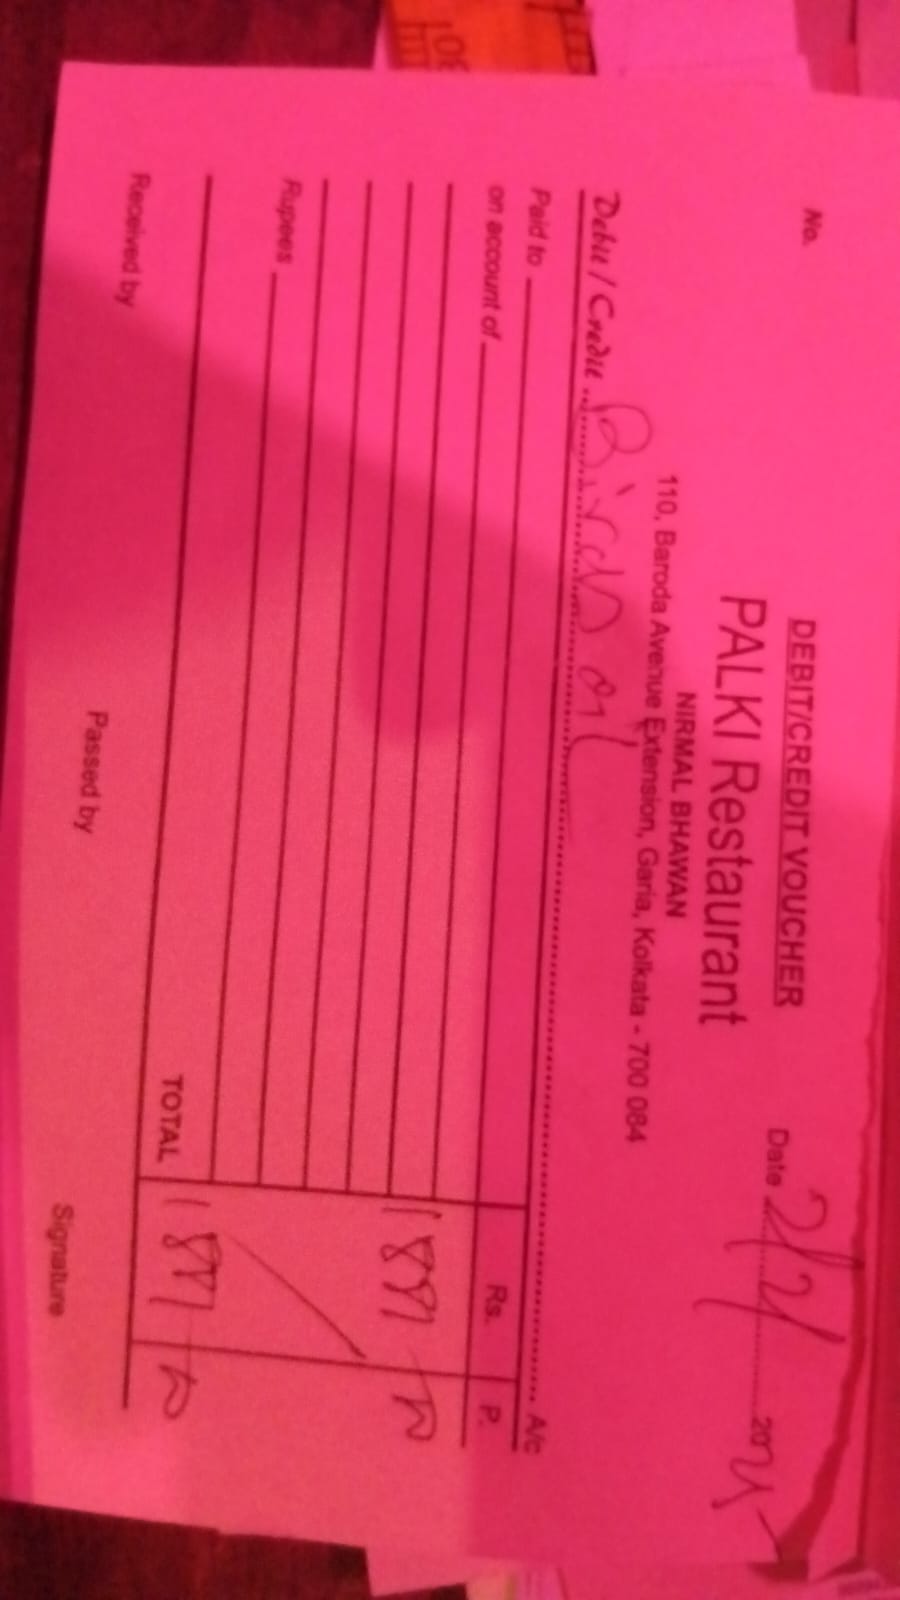 DEBIT/CREDIT VOUCHER
No.
Date 2/2/
PALKI Restaurant
NIRMAL BHAWAN
110, Baroda Avenue Extension, Garia, Kolkata - 700 084
Debit / Credit A/c
Paid to
Rs. P.
on account of
Rupees
TOTAL
Received by Passed by Signature